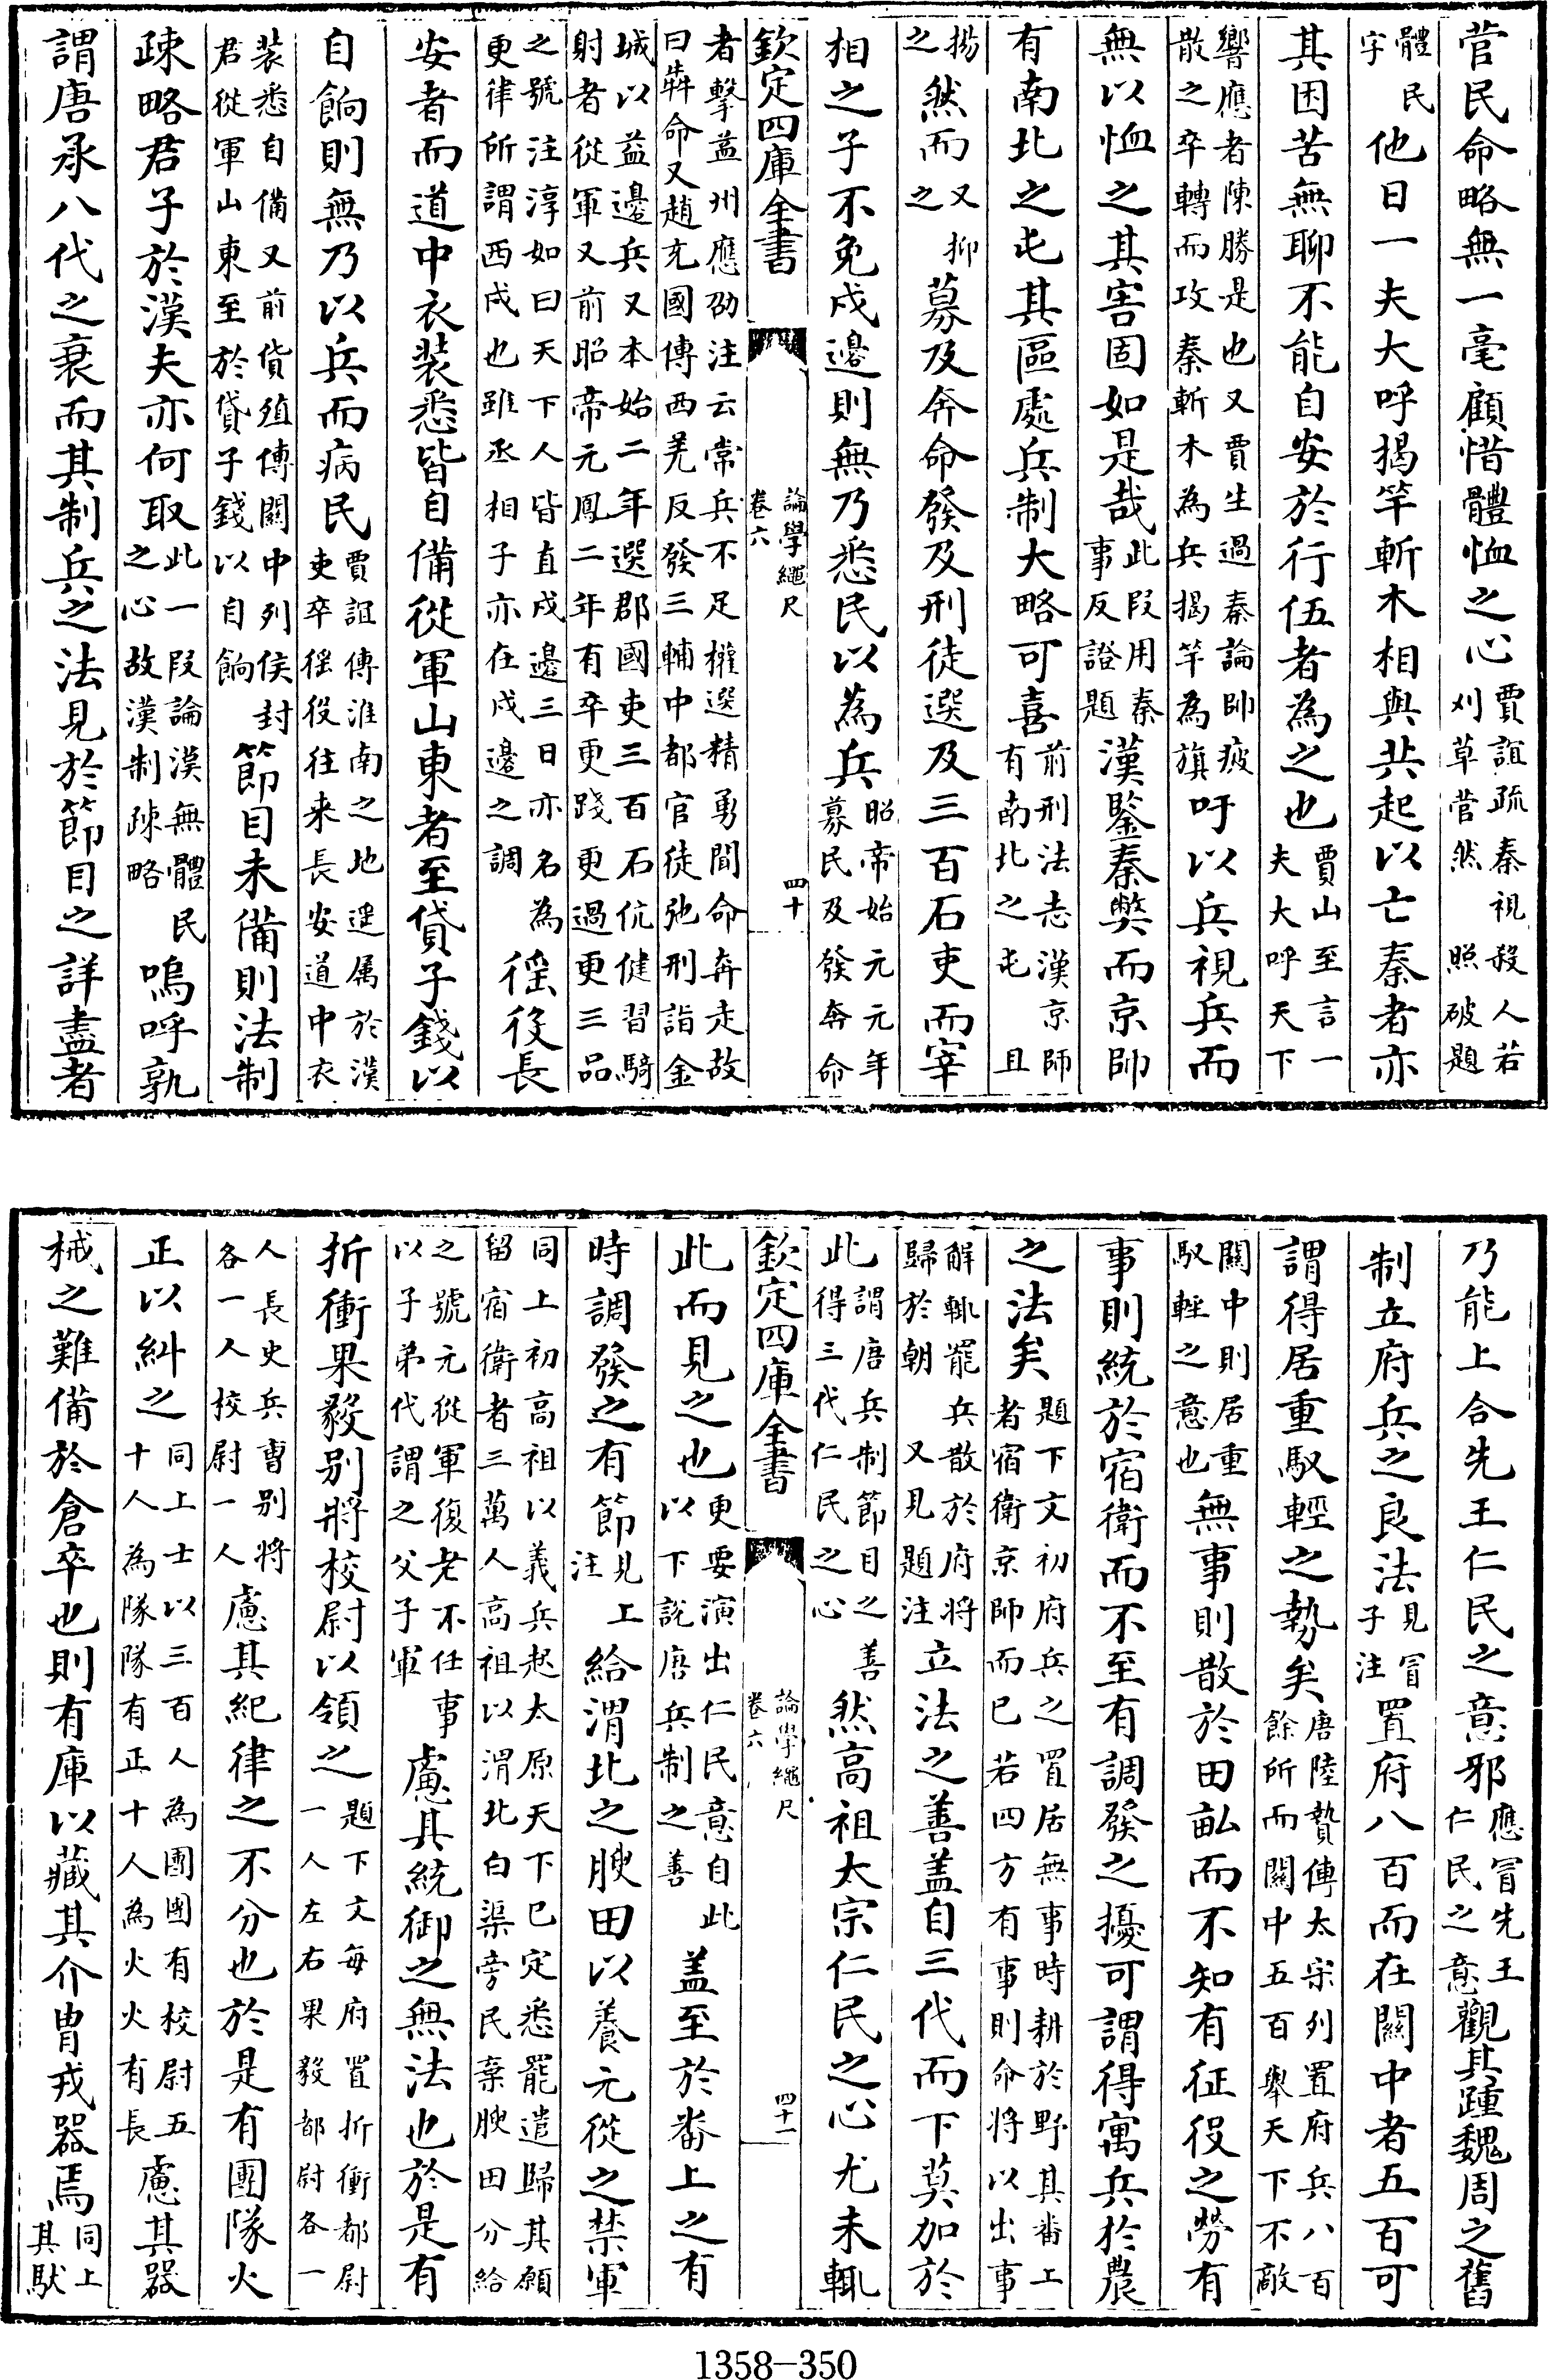 菅民命略無一毫顧惜體恤之心賈誼疏秦視殺人若刈草菅然照破題
體民字他日一夫大呼揭竿斬木相與共起以亡秦者亦
其困苦無聊不能自安於行伍者為之也賈山至言一夫大呼天下
響應者陳勝是也又賈生過秦論帥疲散之卒轉而攻秦斬木為兵揭竿為旗吁以兵視兵而
無以恤之其害固如是哉此段用秦事反證題漢鑒秦弊而京師
有南北之屯其區處兵制大略可喜前刑法志漢京師有南北之屯且
揚之然而又抑之募及奔命發及刑徒選及三百石吏而宰
相之子不免戍邊則無乃悉民以為兵昭帝始元元年募民及發奔命
欽定四庫全書 論學繩尺 卷六 四十
者擊益州應劭注云常兵不足權選精勇聞命奔走故曰犇命又趙充國傳西羌反發三輔中都官徒弛刑詣金
城以益邊兵又本始二年選郡國吏三百石伉健習騎射者從軍又前昭帝元鳳二年有卒更踐更過更三品
之號注淳如曰天下人皆直戍邊三日亦名為更律所謂西戍也雖丞相子亦在戍邊之調徭役長
安者而道中衣裝悉皆自備從軍山東者至貸子錢以
自餉則無乃以兵而病民賈誼傳淮南之地遥属於漢吏卒徭役往来長安道中衣
裝悉自備又前貨殖傳關中列侯封君從軍山東至於貸子錢以自餉節目未備則法制
疎略君子於漢夫亦何取此一段論漢無體民之心故漢制疎略嗚呼孰
謂唐承八代之衰而其制兵之法見於節目之詳盡者
乃能上合先王仁民之意邪應冒先王仁民之意觀其踵魏周之舊
制立府兵之良法見冒子注置府八百而在關中者五百可
謂得居重馭輕之勢矣唐陸贄傳太宗列置府兵八百餘所而關中五百舉天下不敵
關中則居重馭輕之意也無事則散於田畝而不知有征役之勞有
事則統於宿衛而不至有調發之擾可謂得寓兵於農
之法矣題下文初府兵之置居無事時耕於野其番上者宿衛京師而已若四方有事則命將以出事
解輒罷兵散於府將歸於朝又見題注立法之善盖自三代而下莫加於
此謂唐兵制節目之善此得三代仁民之心然高祖太宗仁民之心尤未輒
欽定四庫全書 論學繩尺 卷六 四十一
此而見之也更要演出仁民意自此以下說唐兵制之善盖至於番上之有
時調發之有節見上注給渭北之腴田以養元從之禁軍
同上初高祖以義兵起太原天下已定悉罷遣歸其願留宿衛者三萬人高祖以渭北白渠旁民棄腴田分給
之號元從軍復老不任事以子弟代謂之父子軍慮其統御之無法也於是有
折衝果毅别將校尉以領之題下文每府置折衝都尉一人左右果毅都尉各一
人長史兵曹别將各一人校尉一人慮其紀律之不分也於是有團隊火
正以糾之同上士以三百人為團團有校尉五十人為隊隊有正十人為火火有長慮其器
械之難備於倉卒也則有庫以藏其介冑戎器焉同上其馱
1358-350